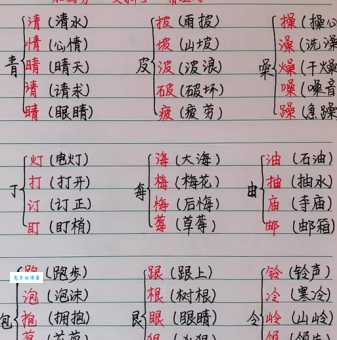 清 (清水) 披 (雨披) 操 (操心
情 (心情) 坡 (山坡) 澡 (洗澡
青 晴 (晴天) 皮 波 (波浪) 喿 燥 (干燥
请 (请求) 破 (破坏) 噪 (噪音
睛 (眼睛) 疲 (疲劳) 躁 (急躁
灯 (电灯) 海 (大海) 油 (石油)
丁 打 (打开) 每 梅 (梅花) 由 抽 (抽水)
订 (订正) 悔 (后悔) 庙 (寺庙)
盯 (盯梢) 莓 (草莓) 邮 (邮箱)
跑 (跑步) 跟 (跟上) 铃 (铃声)
泡 (泡沫) 根 (树根) 冷 (寒冷)
包 抱 (拥抱) 艮 眼 (眼睛) 令 岭 (山岭)